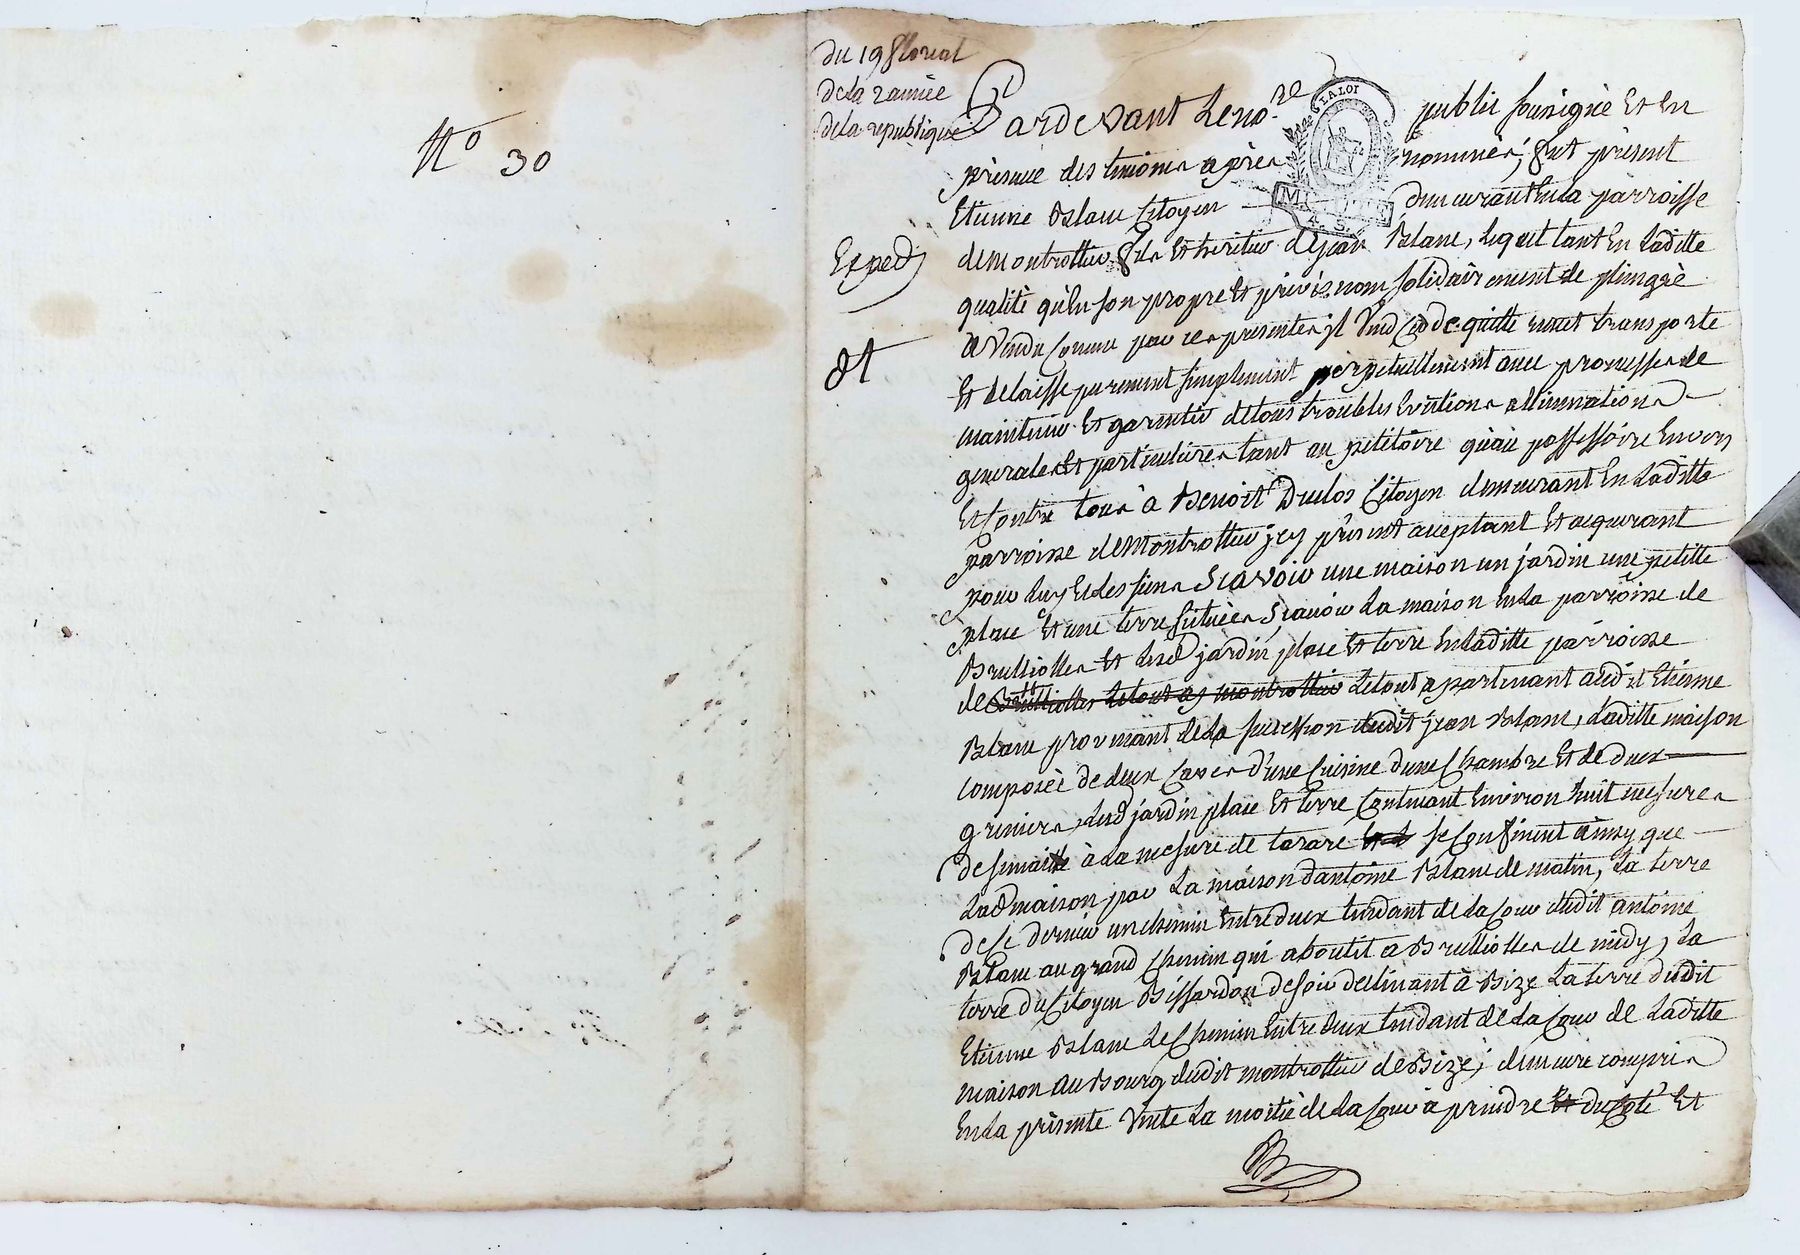 N° 30
du 19 floreal
de la 2 année
de la republique
Exped
dt
LA LOI
Pardevant le no.re public sousigné et en
présence des temoins après nommés, fut présent
Etienne Blanc Citoyen demeurant en la parroisse
de montrottier fils et heritier de jean Blanc, lequel tant en laditte
qualité qu'en son propre et privé nom solidairement de plingré
a vendu comme par ces presentes il vend cede quitte remet transporte
et delaisse purement simplement perpetuellement avec promesse de
maintenir et garentir de tous troubles evictions allienations
generales et particulieres tant au petitoire qu'au possessoire envers
et contre tous à Benoit Duclos Citoyen demeurant en laditte
parroisse de montrottier icy présent aceptant et aquerant
pour luy et les siens Scavoir une maison un jardin une petitte
place et une terre situées Scavoir la maison en la parroisse de
Brulliolles et lesd jardin place et terre en laditte parroisse
de Brulliolles le tout a montrottier le tout apartenant audit Etienne
Blanc provenant de la succession dudit jean Blanc, laditte maison
composée de deux caves d'une cuisine d'une chambre et de deux
greniers, lesd jardin place et terre contenant environ huit mesures
de semaille à la mesure de tarare se confinent ainsy que
lad maison par la maison d'antoine Blanc de matin, la terre
de ce dernier un chemin entre deux tendant de la cour dudit antoine
Blanc au grand chemin qui aboutit a Brulliolles de midy, la
terre du Citoyen Bissardon de soir declinant à Bize la terre dudit
Etienne Blanc le chemin entre deux tendant de la cour de laditte
maison au Bourg dudit montrottier de Bize; demeure compris
en la présente vente la moitié de la cour a prendre et du coté et